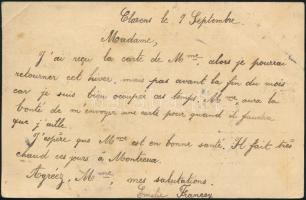 Clarens le 9 Septembre.
Madame,
J'ai reçu la carte de Mme, alors je pourrai
retourner cet hiver, mais pas avant la fin du mois
car je suis bien occuper ces temps. Mme aura la
bonté de m'envoyer une carte pour quand il faudra
que j'aille.
J'espère que Mme est en bonne santé. Il fait très
chaud ces jours à Montreux.
Agréez, Mme, mes salutations.
Emilie